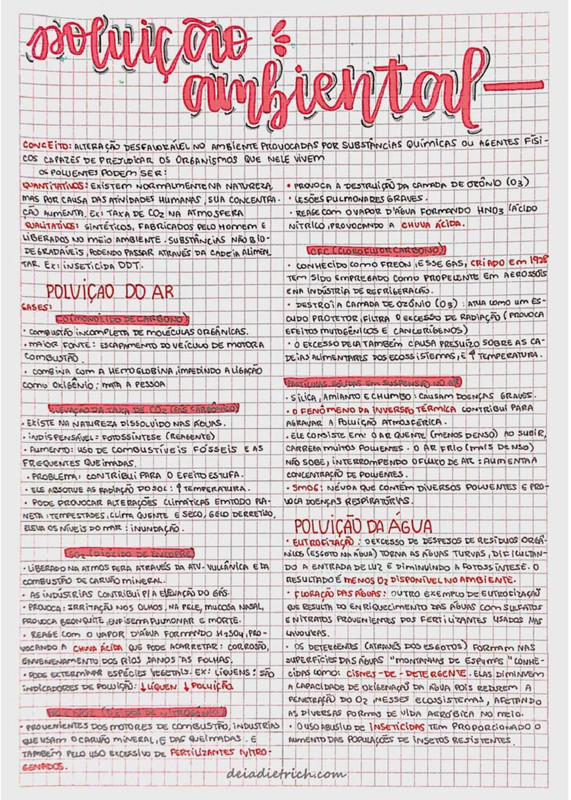 poluição
ambiental
CONCEITO: ALTERAÇÃO DESFAVORÁVEL NO AMBIENTE PROVOCADAS POR SUBSTÂNCIAS QUÍMICAS OU AGENTES FÍSI-
COS CAPAZES DE PREJUDICAR OS ORGANISMOS QUE NELE VIVEM
OS POLUENTES PODEM SER:
QUANTITATIVOS: EXISTEM NORMALMENTE NA NATUREZA,
MAS POR CAUSA DAS ATIVIDADES HUMANAS, SUA CONCENTRA-
ÇÃO AUMENTA. EX: TAXA DE CO2 NA ATMOSFERA
QUALITATIVOS: SINTÉTICOS, FABRICADOS PELO HOMEM E
LIBERADOS NO MEIO AMBIENTE. SUBSTÂNCIAS NÃO BIO-
DEGRADÁVEIS, PODENDO PASSAR ATRAVÉS DA CADEIA ALIMEN-
TAR. EX: INSETICIDA DDT.
POLUIÇÃO DO AR
GASES:
CO (MONÓXIDO DE CARBONO)
• COMBUSTÃO INCOMPLETA DE MOLÉCULAS ORGÂNICAS.
• MAIOR FONTE: ESCAPAMENTO DO VEÍCULO DE MOTOR A
COMBUSTÃO.
• COMBINA COM A HEMOGLOBINA, IMPEDINDO A LIGAÇÃO
COMO OXIGÊNIO: MATA A PESSOA
ELEVAÇÃO DA TAXA DE CO2 (GÁS CARBÔNICO)
• EXISTE NA NATUREZA DISSOLVIDO NAS ÁGUAS.
• INDISPENSÁVEL: FOTOSSÍNTESE (REAGENTE)
• AUMENTO: USO DE COMBUSTÍVEIS FÓSSEIS E AS
FREQUENTES QUEIMADAS.
• PROBLEMA: CONTRIBUI PARA O EFEITO ESTUFA.
• ELE ABSORVE AS RADIAÇÃO DO SOL: ↑ TEMPERATURA.
• PODE PROVOCAR ALTERAÇÕES CLIMÁTICAS EM TODO PLA-
NETA: TEMPESTADES, CLIMA QUENTE E SECO, GELO DERRETIDO,
ELEVA OS NÍVEIS DO MAR: INUNDAÇÃO.
SO2 (DIÓXIDO DE ENXOFRE)
• LIBERADO NA ATMOSFERA ATRAVÉS DA ATV. VULCÂNICA E DA
COMBUSTÃO DE CARVÃO MINERAL.
• AS INDÚSTRIAS CONTRIBUI P/A ELEVAÇÃO DO GÁS.
• PROVOCA: IRRITAÇÃO NOS OLHOS, NA PELE, MUCOSA NASAL,
PROVOCA BRONQUITE, ENFISEMA PULMONAR E MORTE.
• REAGE COM O VAPOR D'ÁGUA FORMANDO H2SO4, PRO-
VOCANDO A CHUVA ÁCIDA QUE PODE ACARRETAR: CORROSÃO,
ENVENENAMENTO DOS RIOS DANOS AS FOLHAS.
• PODE EXTERMINAR ESPÉCIES VEGETAIS. EX: LIQUENS: SÃO
INDICADORES DE POLUIÇÃO: ↓LIQUEN ↓POLUIÇÃO.
• PROVENIENTES DOS MOTORES DE COMBUSTÃO, INDUSTRIAS
QUE USAM O CARVÃO MINERAL, E DAS QUEIMADAS. E
TAMBÉM PELO USO EXCESSIVO DE FERTILIZANTES NITRO-
GENADOS.
• PROVOCA A DESTRUIÇÃO DA CAMADA DE OZÔNIO (O3)
• LESÕES PULMONARES GRAVES.
• REAGE COM O VAPOR D'ÁGUA FORMANDO HNO3 (ÁCIDO
NÍTRICO), PROVOCANDO A CHUVA ÁCIDA.
CFC (CLOROFLUORCARBONO)
• CONHECIDO COMO FREON, ESSE GAS, CRIADO EM 1928
TEM SIDO EMPREGADO COMO PROPELENTE EM AEROSSÓIS
E NA INDÚSTRIA DE REFRIGERAÇÃO.
• DESTRÓI A CAMADA DE OZÔNIO (O3): ATUA COMO UM ES-
CUDO PROTETOR, FILTRA O EXCESSO DE RADIAÇÃO (PROVOCA
EFEITOS MUTOGÊNICOS E CANCERÍGENOS)
• O EXCESSO DELA TAMBÉM CAUSA PREJUÍZO SOBRE AS CA-
DEIAS ALIMENTARES DOS ECOSSISTEMAS, E ↑ TEMPERATURA.
PARTÍCULAS SÓLIDAS EM SUSPENSÃO NO AR
• SÍLICA, AMIANTO E CHUMBO: CAUSAM DOENÇAS GRAVES.
• O FENÔMENO DA INVERSÃO TÉRMICA CONTRIBUI PARA
AGRAVAR A POLUIÇÃO ATMOSFÉRICA.
• ELE CONSISTE EM: O AR QUENTE (MENOS DENSO) AO SUBIR,
CARREGA MUITOS POLUENTES. O AR FRIO (MAIS DENSO)
NÃO SOBE, INTERROMPENDO O FLUXO DE AR: AUMENTA A
CONCENTRAÇÃO DE POLUENTES.
• SMOG: NÉVOA QUE CONTÉM DIVERSOS POLUENTES E PRO-
VOCA DOENÇAS RESPIRATÓRIAS.
POLUIÇÃO DA ÁGUA
• EUTROFIZAÇÃO: O EXCESSO DE DESPESOS DE RESÍDUOS ORGÂ-
NICOS (ESGOTO NA ÁGUA) TORNA AS ÁGUAS TURVAS, DIFICULTAN-
DO A ENTRADA DE LUZ E DIMINUINDO A FOTOSSÍNTESE. O
RESULTADO É MENOS O2 DISPONÍVEL NO AMBIENTE.
• FLORAÇÃO DAS ÁGUAS: OUTRO EXEMPLO DE EUTROFIZAÇÃO
QUE RESULTA DO ENRIQUECIMENTO DAS ÁGUAS COM SULFATOS
E NITRATOS PROVENIENTES DOS FERTILIZANTES USADOS NAS
LAVOURAS.
• OS DETERGENTES (ATRAVÉS DOS ESGOTOS) FORMAM NAS
SUPERFÍCIES DAS ÁGUAS "MONTANHAS DE ESPUMAS" CONHE-
CIDAS COMO: CISNES-DE-DETERGENTE. ELAS DIMINUEM
A CAPACIDADE DE OXIGENAÇÃO DA ÁGUA POIS REDUZEM A
PENETRAÇÃO DO O2 NESSES ECOSSISTEMAS, AFETANDO
AS DIVERSAS FORMAS DE VIDA AERÓBICA NO MEIO.
• O USO ABUSIVO DE INSETICIDAS TEM PROPORCIONADO O
AUMENTO DAS POPULAÇÕES DE INSETOS RESISTENTES.
deiadietrich.com